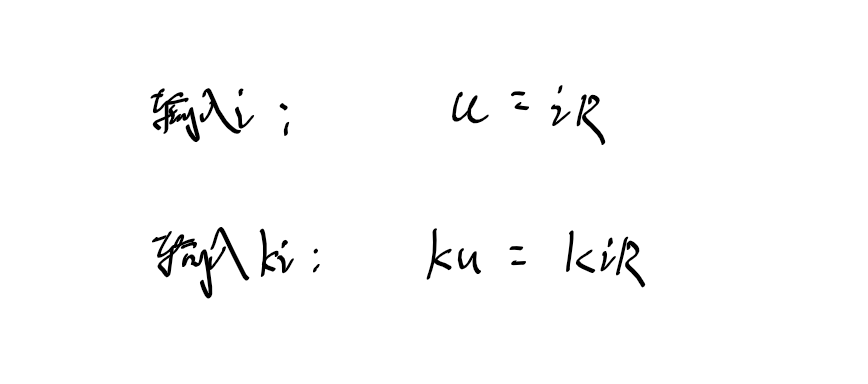 输入i; u = iR
输入ki: ku = kiR